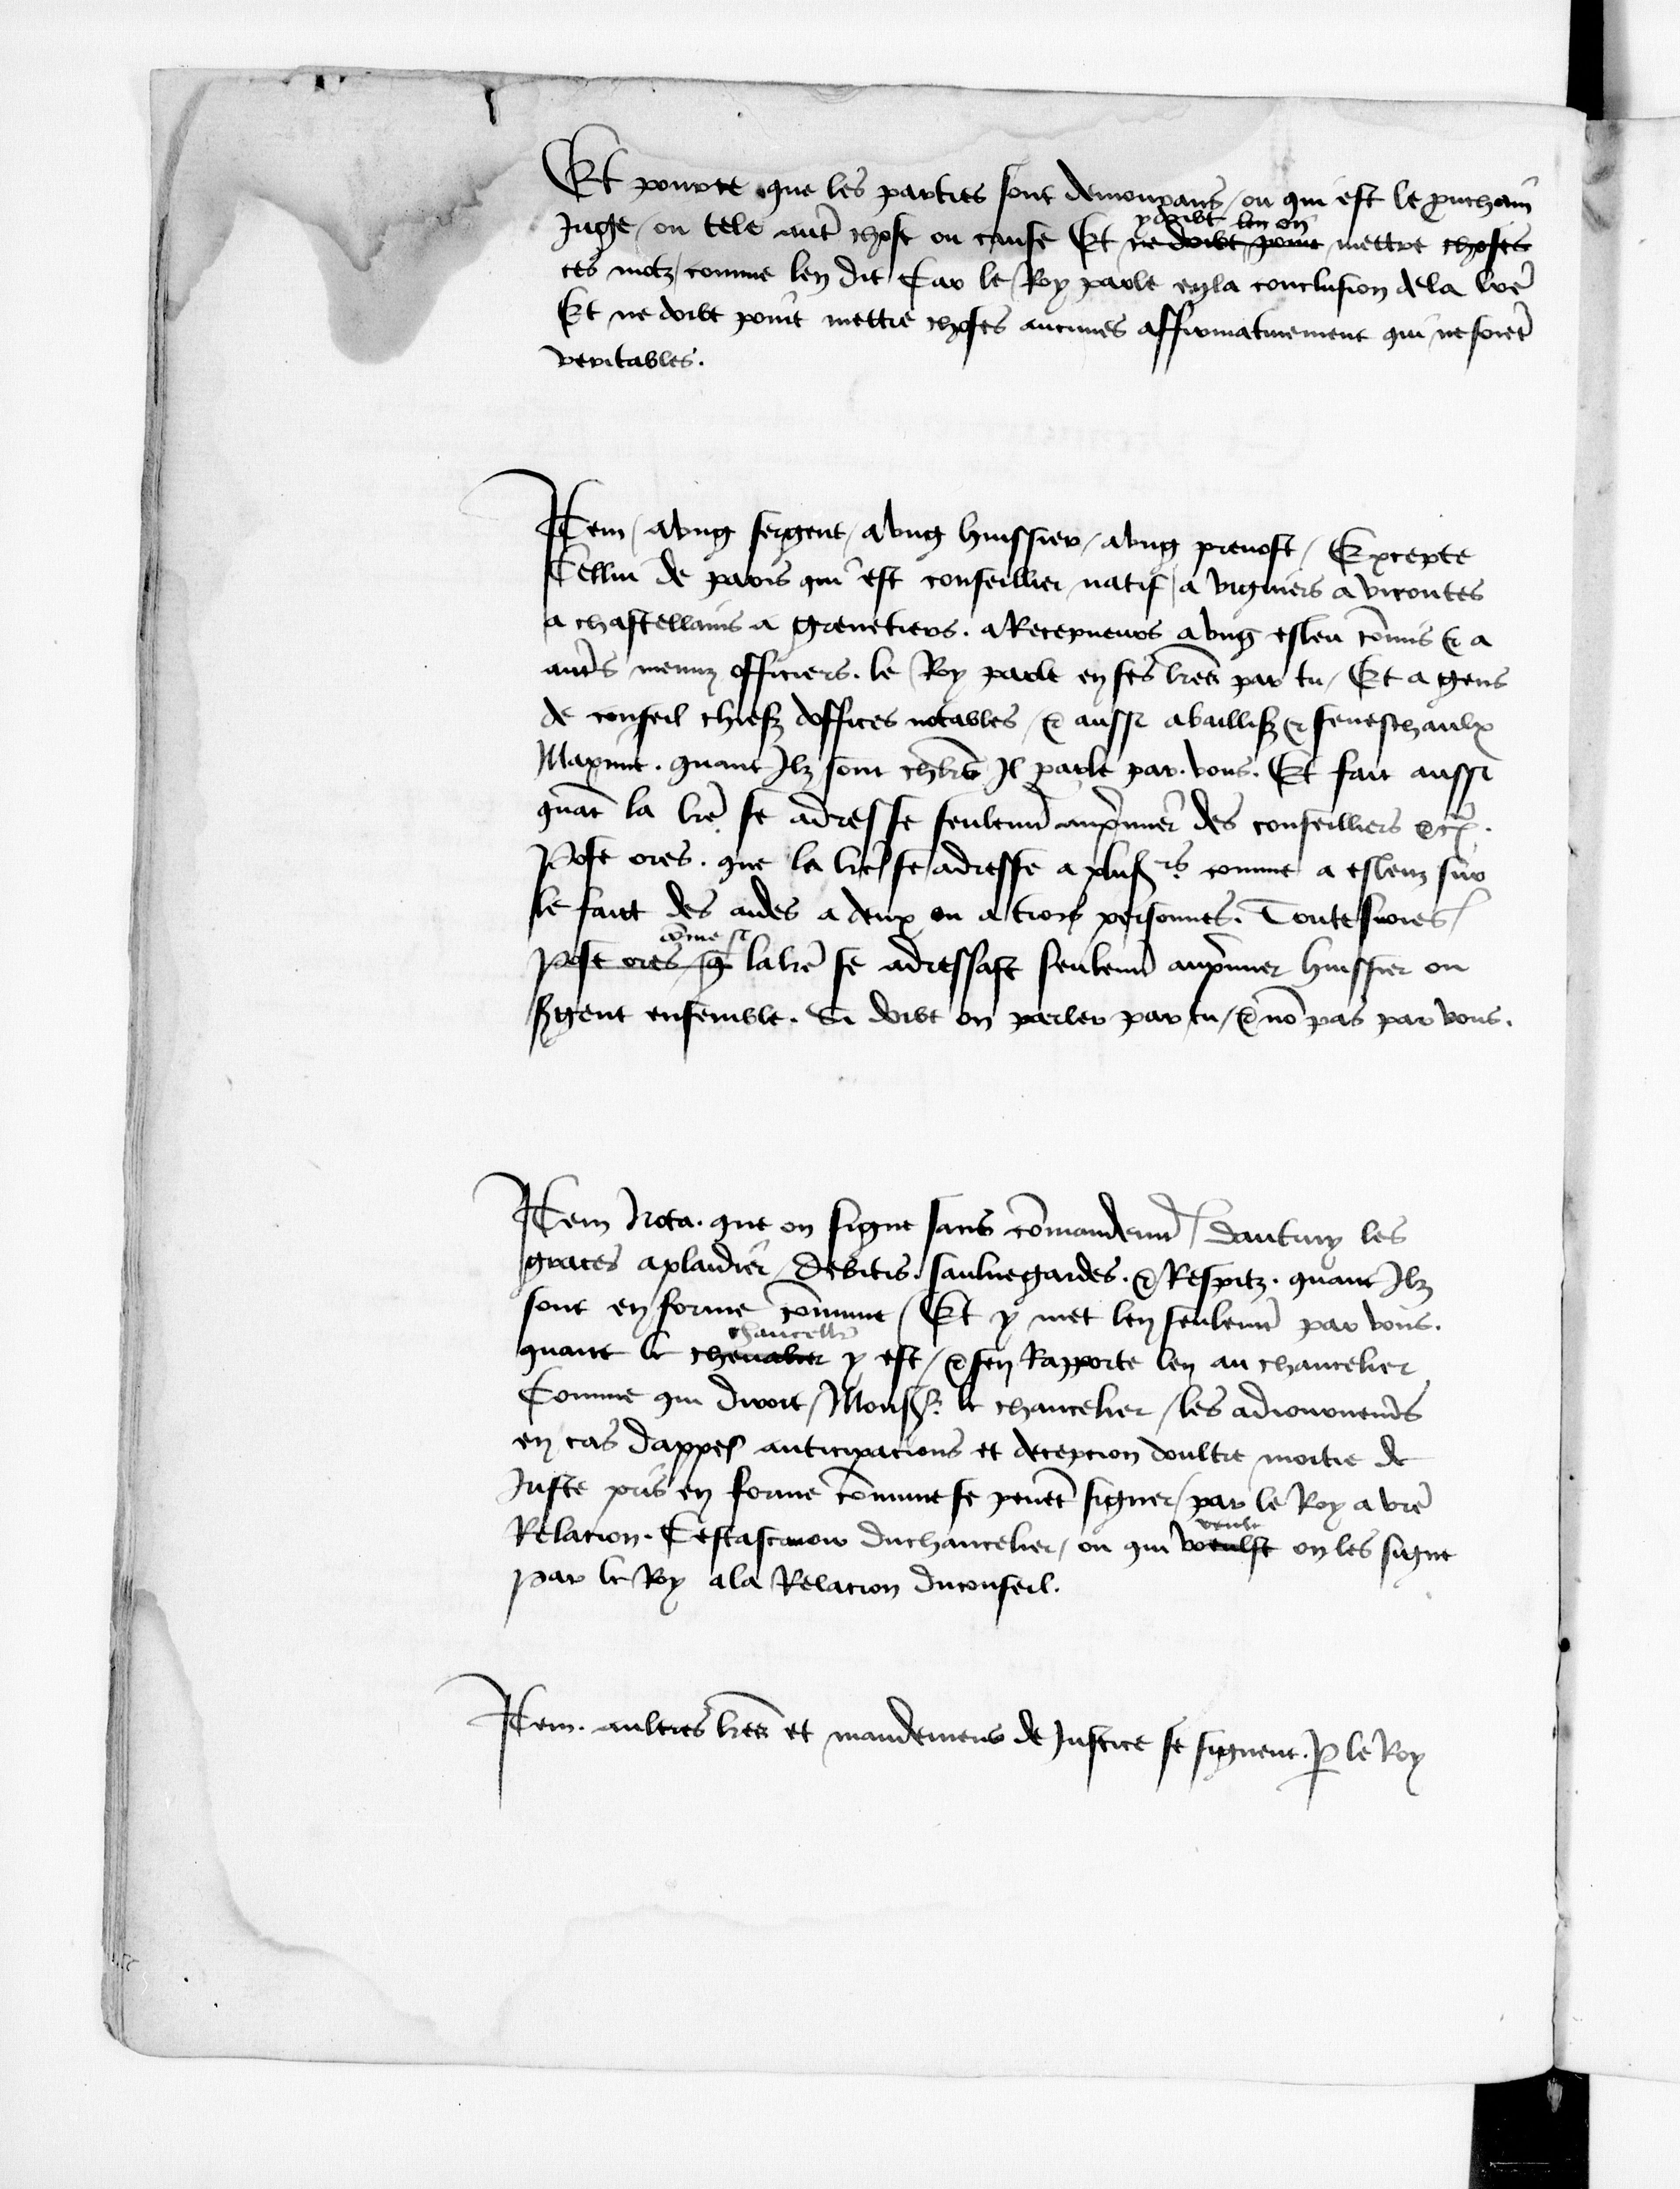 Et pource que les parties sont demourans / ou qui est le pnchaiñ
Juge / ou tele autr̃ chose ou cause Et y doibt len on ne doibt point mettre choses
ces motz / comme len dit Car le Roy parle en la conclusion de la lrẽ
Et ne doibt point mettre choses aucunes affirmatiuement qui ne soiẽt
veritables.
Item / a vng sergent / a vng huissier / a vng preuost / Excepte
Cellui de paris qui est conseillier natif / a viguiers a vicontes
a chastellains a grenetiers. a Receueurs a vng esleu cõmis & a
autr̃s menuz officiers. le Roy parle en ses lrẽs par tu / Et a gens
de conseil chiefz doffices notables / & aussi a baillifz & seneschaulx
Maxime. quant Ilz sont chlrs̃ Il parle par. vous. Et fait aussi
quãt la lrẽ se adresse seulemt̃ au pmier̃ des conseilliers &c̃.
Pose ores. que la lrẽ se adresse a plusrs. comme a esleuz sur
le faict des aides a deux ou a trois personnes. Toutesuoies /
cõme si Pose ores q̃ la lrẽ se adressast seulemt̃ au pmier huissier ou
sgent ensemble. Si doibt on parler par tu / & nõ pas par vous.
Item Nota. que on signe sans cõmandemt̃ / daucuny les
graces a plaidier / debitis. sauluegardes. & Respitz. quant Ilz
sont en forme cõmune / Et y met len seulemt̃ par vous.
quant le chancellr̃ cheualier y est / & sen Rapporte len au chancelier
Comme qui diroit / Monsr. le chancelier / les adiournemt̃s
en cas dappel anticipacions et decepcion doultre moitie de
Juste pris en forme cõmune se peuẽt signer / par le Roy a vrẽ
Relacion. Cest ascauoir du chancelier / ou qui veult voulsist on les signe
par le Roy a la Relacion du conseil.
Item. aultres lrẽs et mandemens de Justice se signent. P le Roy